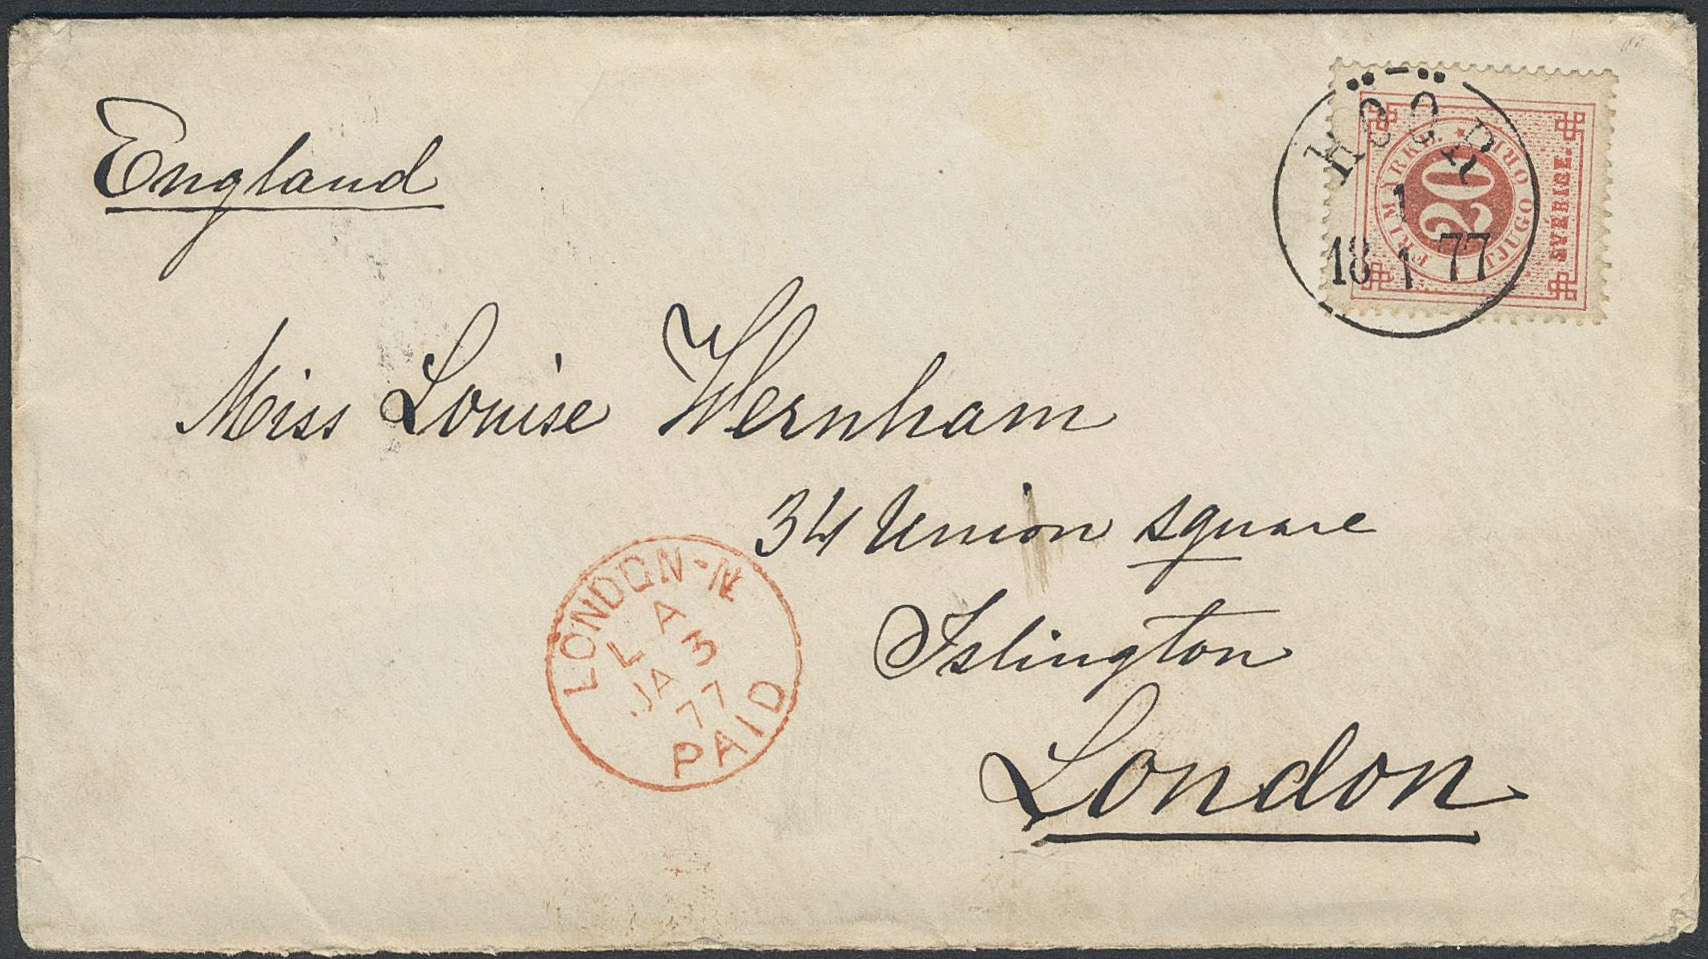 England
HÖÖR
1
18 1 77
FRIMÄRKE
TJUGO ÖRE
20
SVERIGE.
Miss Louise Wernham
34 Union square
Islington
London
LONDON-N
A
L 3
JA
77
PAID